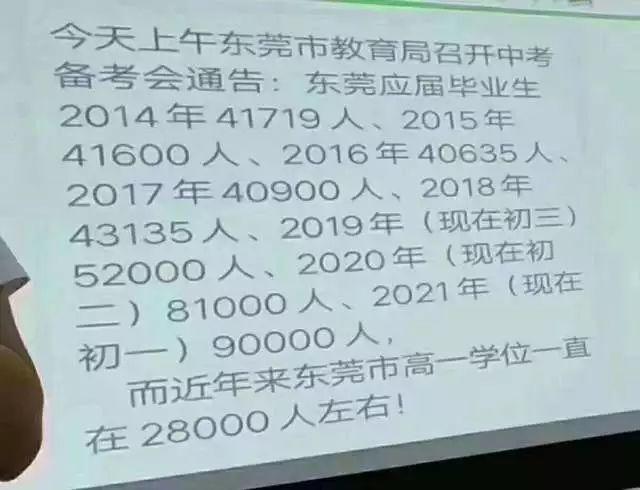 今天上午东莞市教育局召开中考
备考会通告：东莞应届毕业生
2014年41719人、2015年
41600人、2016年40635人、
2017年40900人、2018年
43135人、2019年（现在初三）
52000人、2020年（现在初
二）81000人、2021年（现在
初一）90000人，
而近年来东莞市高一学位一直
在28000人左右！